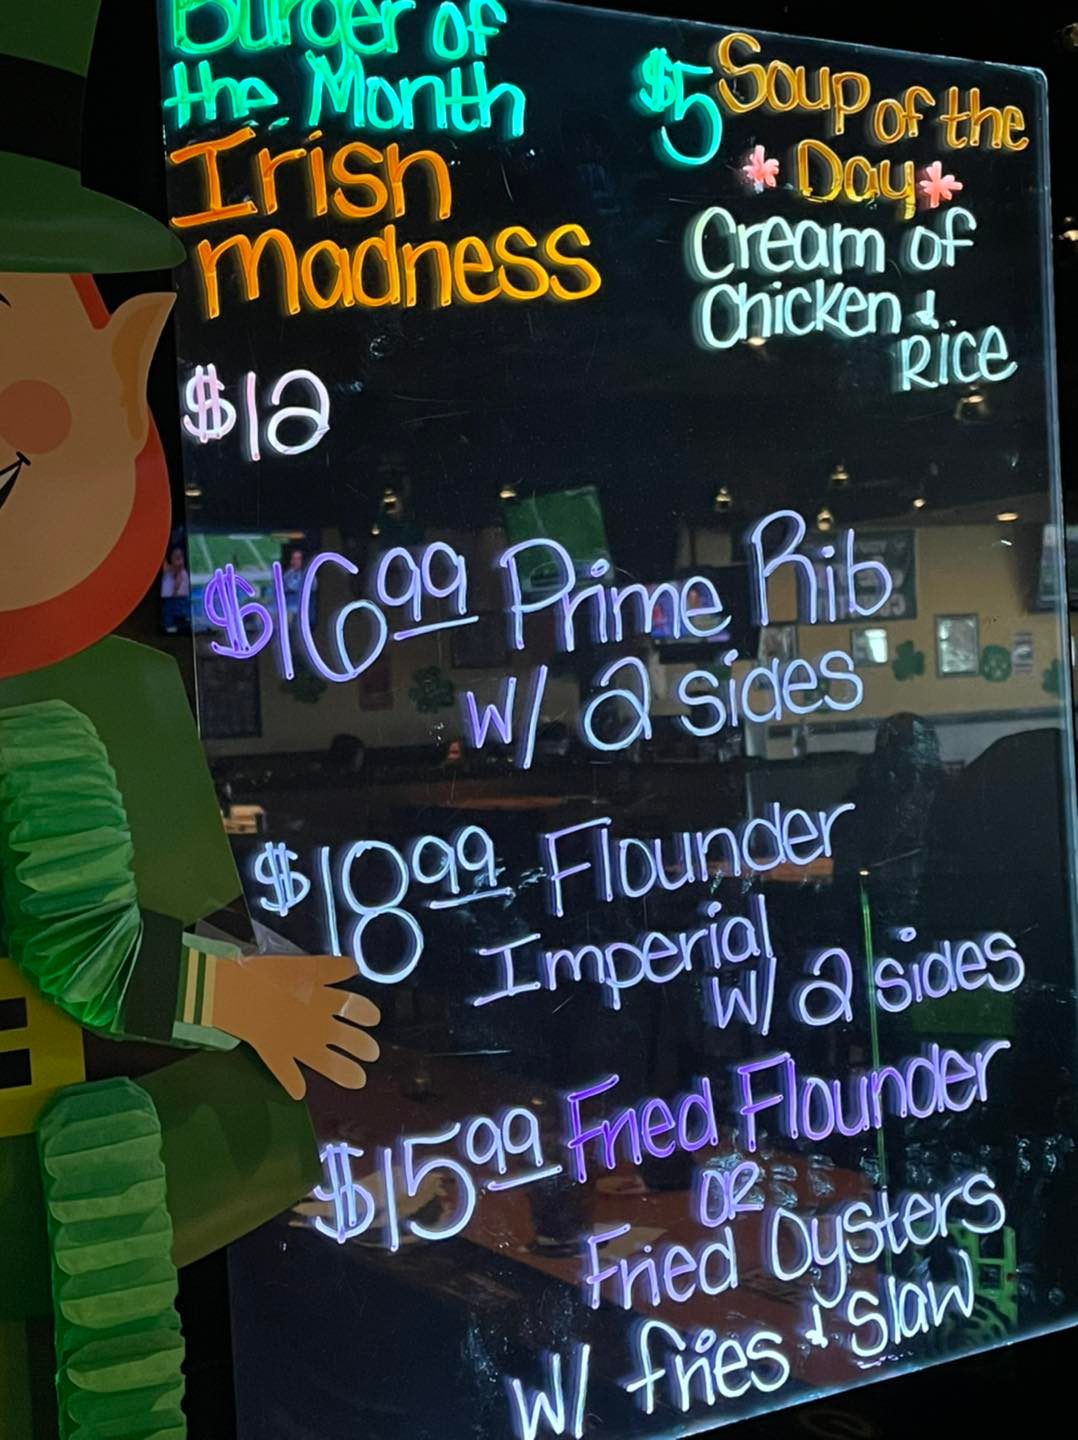 Burger of
the Month
Irish
Madness
$12
$5 Soup of the
Day
Cream of
Chicken &
Rice
$16.99 Prime Rib
w/ 2 sides
$18.99 Flounder
Imperial
w/ 2 sides
$15.99 Fried Flounder
OR
Fried Oysters
w/ fries & slaw